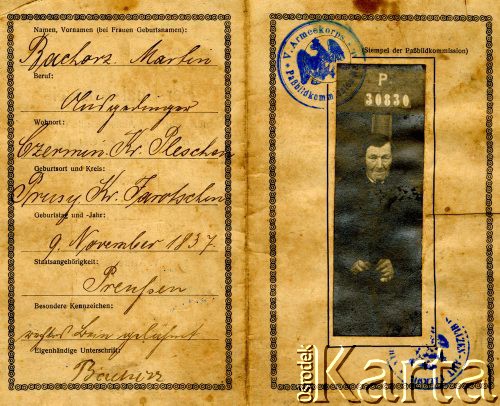 Namen, Vornamen (bei Frauen Geburtsnamen):
Bacharz Martin
Beruf:
Ausgedinger
Wohnort:
Czermin Kr. Pleschen
Geburtsort und Kreis:
Prusy Kr. Jarotschin
Geburtstag und -Jahr:
9. November 1837
Staatsangehörigkeit:
Preußen
Besondere Kennzeichen:
rechtes Bein gelähmt
Eigenhändige Unterschrift:
V. Armeekorps
Paßbildkomm
(Stempel der Paßbildkommission)
P.
30830
Ośrodek
Karta